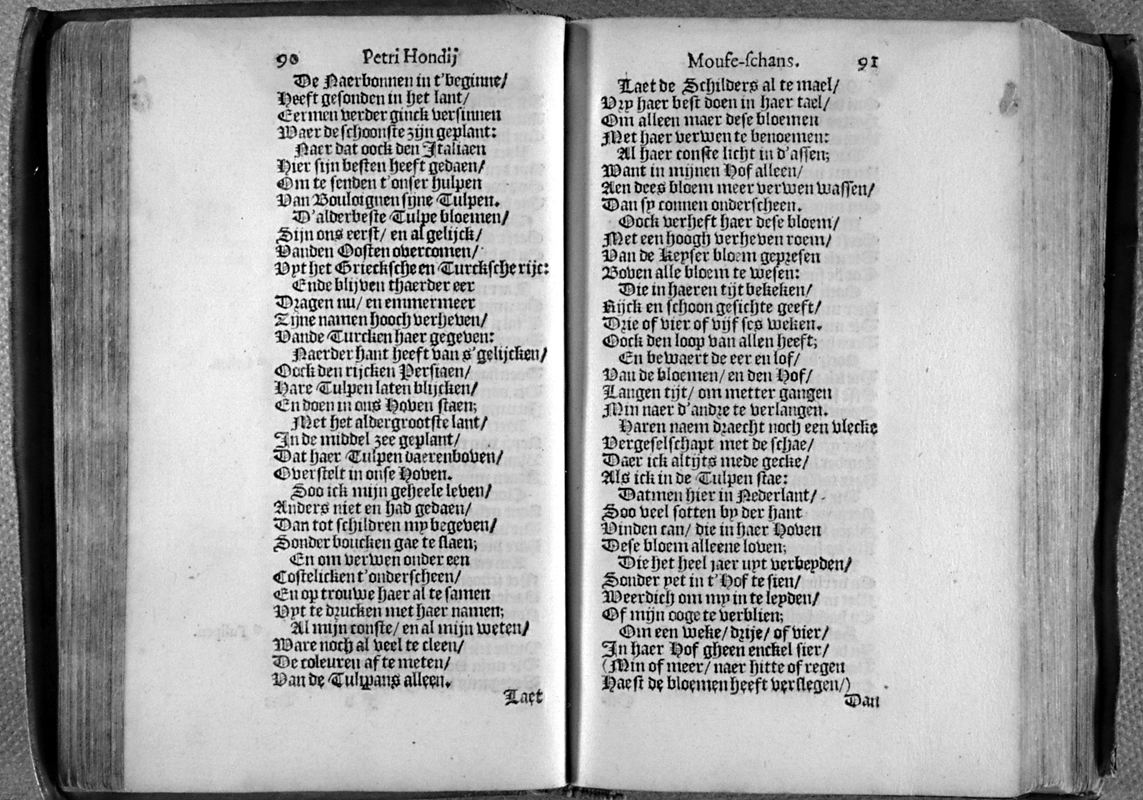 90 Petri Hondij
De Naerbonnen in t'beginne/
Heeft gesonden in het lant/
Eermen verder ginck versinnen
Waer de schoonste zijn geplant:
Naer dat oock den Italiaen
Hier sijn besten heeft gedaen/
Om te senden t'onser hulpen
Van Bouloignen sijne Tulpen.
D'alderbeste Tulpe bloemen/
Sijn ons eerst/ en al gelijck/
Vanden Oosten overcomen/
Uyt het Griecksche en Turcksche rijc:
Ende blijven thaerder eer
Dragen nu/ en emmermeer
Zijne namen hooch verheven/
Vande Turcken haer gegeven:
Naerder hant heeft van s'gelijcken/
Oock den rijcken Persiaen/
Hare Tulpen laten blijcken/
En doen in ons Hoven staen;
Met het aldergrootste lant/
In de middel zee geplant/
Dat haer Tulpen daerenboven/
Overstelt in onse Hoven.
Soo ick mijn geheele leven/
Anders niet en had gedaen/
Dan tot schildren my begeven/
Sonder boucken gae te slaen;
En om verwen onder een
Costelicken t'onderscheen/
En op trouwe haer al te samen
Uyt te drucken met haer namen;
Al mijn conste/ en al mijn weten/
Ware noch al veel te cleen/
De coleuren af te meten/
Van de Tulipans alleen.
Laet
Mouse-schans. 91
Laet de Schilders al te mael/
Vry haer best doen in haer tael/
Om alleen maer dese bloemen
Met haer verwen te benoemen:
Al haer conste licht in d'assen;
Want in mijnen Hof alleen/
Aen dees bloem meer verwen wassen/
Dan sy connen onderscheen.
Oock verheft haer dese bloem/
Met een hoogh verheven roem/
Van de Keyser bloem gepresen
Boven alle bloem te wesen:
Die in haeren tijt bekeken/
Rijck en schoon gesichte geeft/
Drie of vier of vijf ses weken.
Oock den loop van allen heeft;
En bewaert de eer en lof/
Van de bloemen/ en den Hof/
Langen tijt/ om metter gangen
Min naer d'andre te verlangen.
Haren naem draecht noch een vlecke
Vergeselschapt met de schae/
Daer ick altijts mede gecke/
Als ick in de Tulpen stae:
Datmen hier in Nederlant/
Soo veel sotten by der hant
Vinden can/ die in haer Hoven
Dese bloem alleene loven;
Die het heel jaer uyt verbeyden/
Sonder yet in t'Hof te sien/
Weerdich om my in te leyden/
Of mijn ooge te verblien;
Om een weke/ drije/ of vier/
In haer Hof gheen enckel sier/
(Min of meer/ naer hitte of regen
Haest de bloemen heeft verslegen/)
Dan